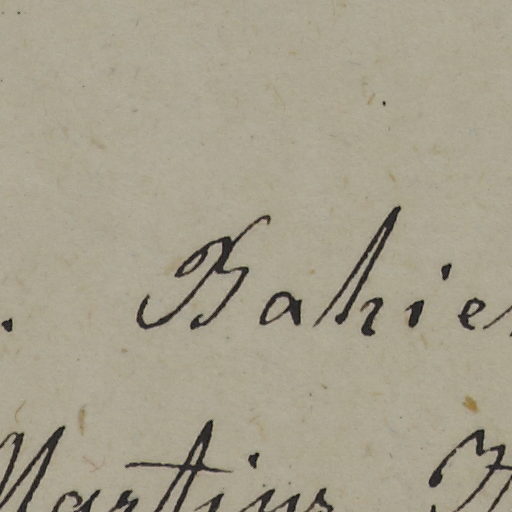 . Bahie
Martius